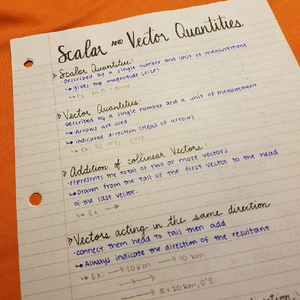 Scalar AND Vector Quantities
Scalar Quantities:
Described by a single number and unit of measurement
↳ gives the magnitude (size)
↳ Ex:
Vector Quantities
Described by a single number and a unit of measurement
↳ Arrows are used
↳ indicated direction (Head of arrow)
↳ Ex:
Addition of collinear Vectors:
represents the total of two or more vectors
↳ Drawn from the tail of the first vector to the head
of the last vector.
↳ Ex →
Vectors acting in the same direction
connect them head to tail then add
↳ Always indicate the direction of the resultant
↳ Ex: → 10km → 10 km
R = 20 km, 0°E